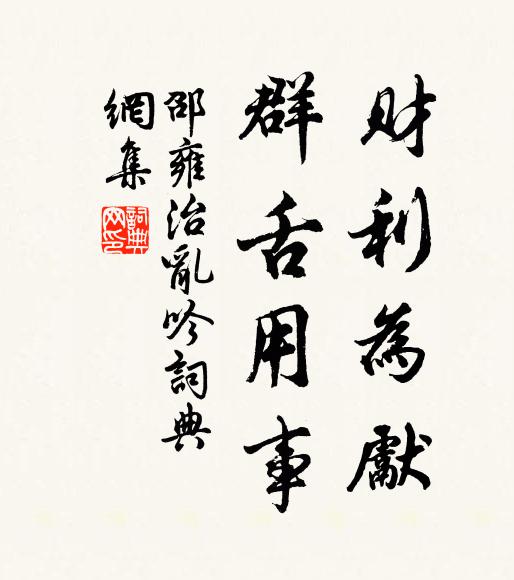 財利為獻
群舌用事
邵雍治亂吟詞典
網集
詞典
网印